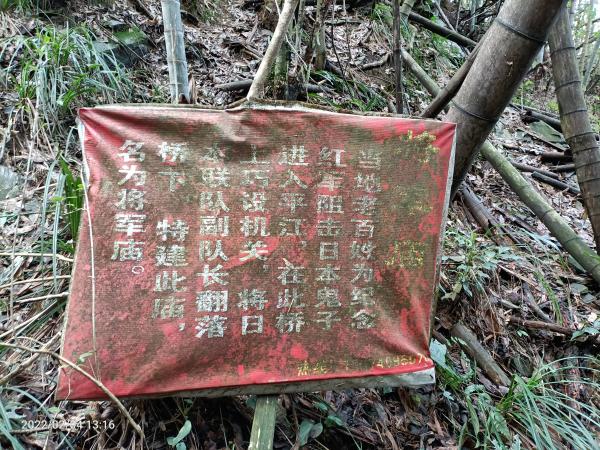 将军庙
当地老百姓为纪念
红军阻击日本鬼子
进入平江，在此桥
上巧设机关，将日
本联队副队长翻落
桥下 特建此庙，
名为将军庙。
13:16